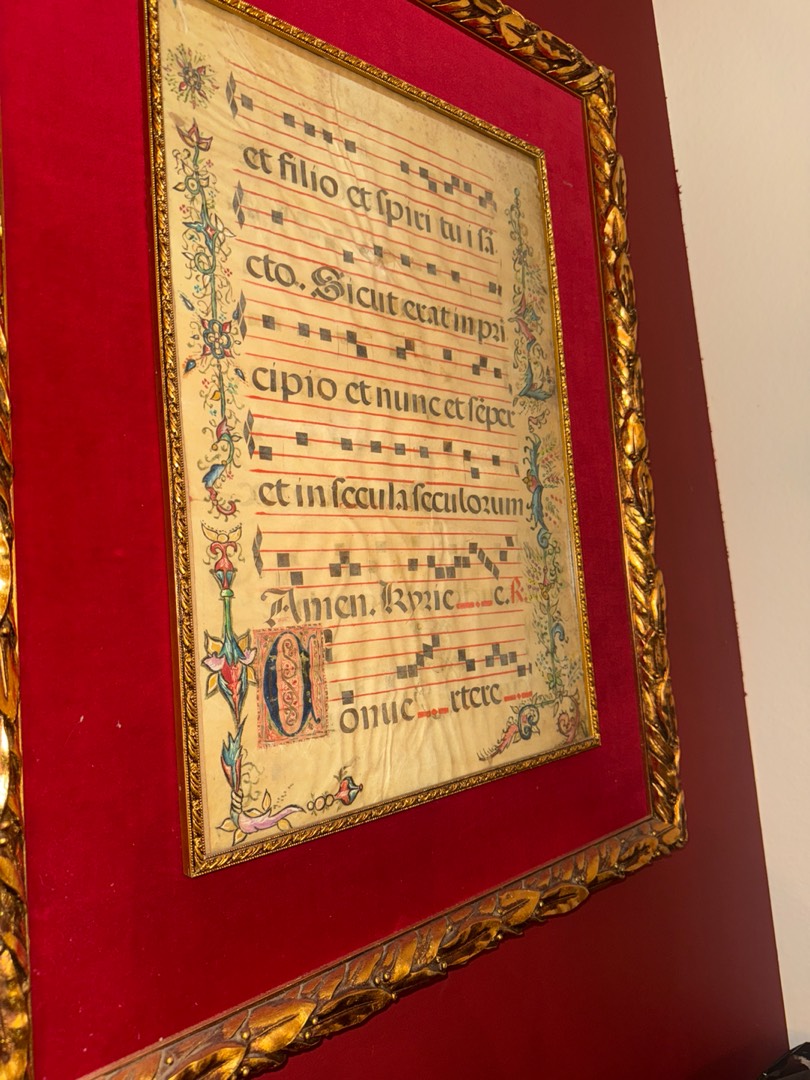 et filio et spiri tu i sā
cto. Sicut erat in pri
cipio et nunc et sēper
et in secula seculorum
Amen. Kyrie e. R.
Conue rtere